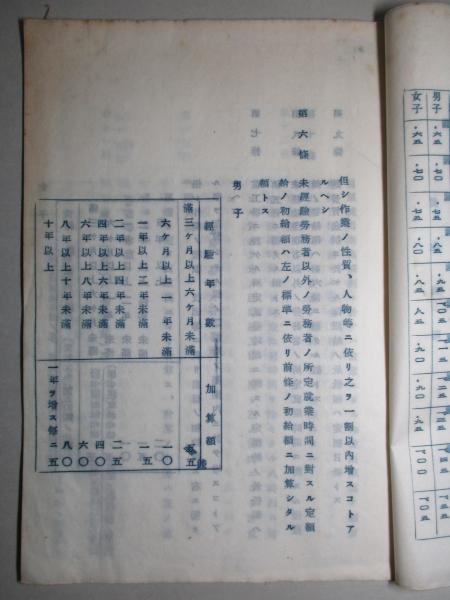 男子
女子
・六五
・六五
・七〇
・七〇
・八〇
・八五
・九〇
但シ作業ノ性質、人物等ニ依リ之ヲ一割以内増スコトア
ルヘシ
第六條 未經驗勞務者以外ノ勞務者ノ所定就業時間ニ對スル定額
給ノ初給額ハ左ノ標準ニ依リ前條ノ初給額ニ加算シタル
額トス
男子
經驗年數 加算額
滿三ケ月以上六ケ月未滿 五
六ケ月以上一年未滿 一〇
一年以上二年未滿 一五
二年以上四年未滿 二五
四年以上六年未滿 四〇
六年以上八年未滿 六〇
八年以上十年未滿 八〇
十年以上 一年ヲ增ス每ニ五